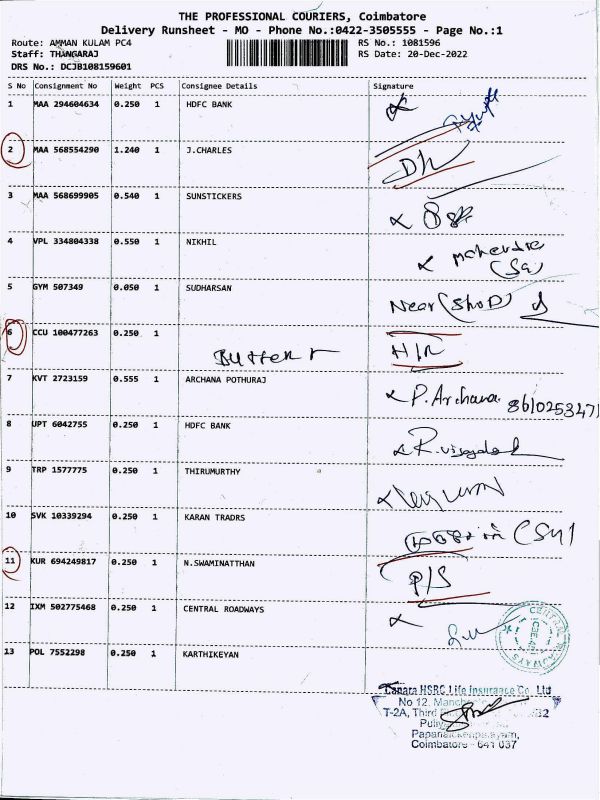 THE PROFESSIONAL COURIERS, Coimbatore
Delivery Runsheet - MO - Phone No.:0422-3505555 - Page No.:1
Route: AMMAN KULAM PC4 RS No.: 1081596
Staff: THANGARAJ RS Date: 20-Dec-2022
DRS No.: DCJB108159601
S No Consignment No Weight PCS Consignee Details Signature
1 MAA 294604634 0.250 1 HDFC BANK
2 MAA 568554290 1.240 1 J.CHARLES
3 MAA 568699905 0.540 1 SUNSTICKERS
4 VPL 334804338 0.550 1 NIKHIL
5 GYM 507349 0.050 1 SUDHARSAN Near (Shop)
6 CCU 100477263 0.250 1
7 KVT 2723159 0.555 1 ARCHANA POTHURAJ P. Archana
8 UPT 6042755 0.250 1 HDFC BANK
9 TRP 1577775 0.250 1 THIRUMURTHY
10 SVK 10339294 0.250 1 KARAN TRADRS
11 KUR 694249817 0.250 1 N.SWAMINATTHAN P/S
12 IXM 502775468 0.250 1 CENTRAL ROADWAYS
13 POL 7552298 0.250 1 KARTHIKEYAN
CENTRAL ROADWAYS
Canara HSBC Life Insurance Co. Ltd
No 12,
T-2A, Third
Papanaickenpalayam,
Coimbatore - 641 037